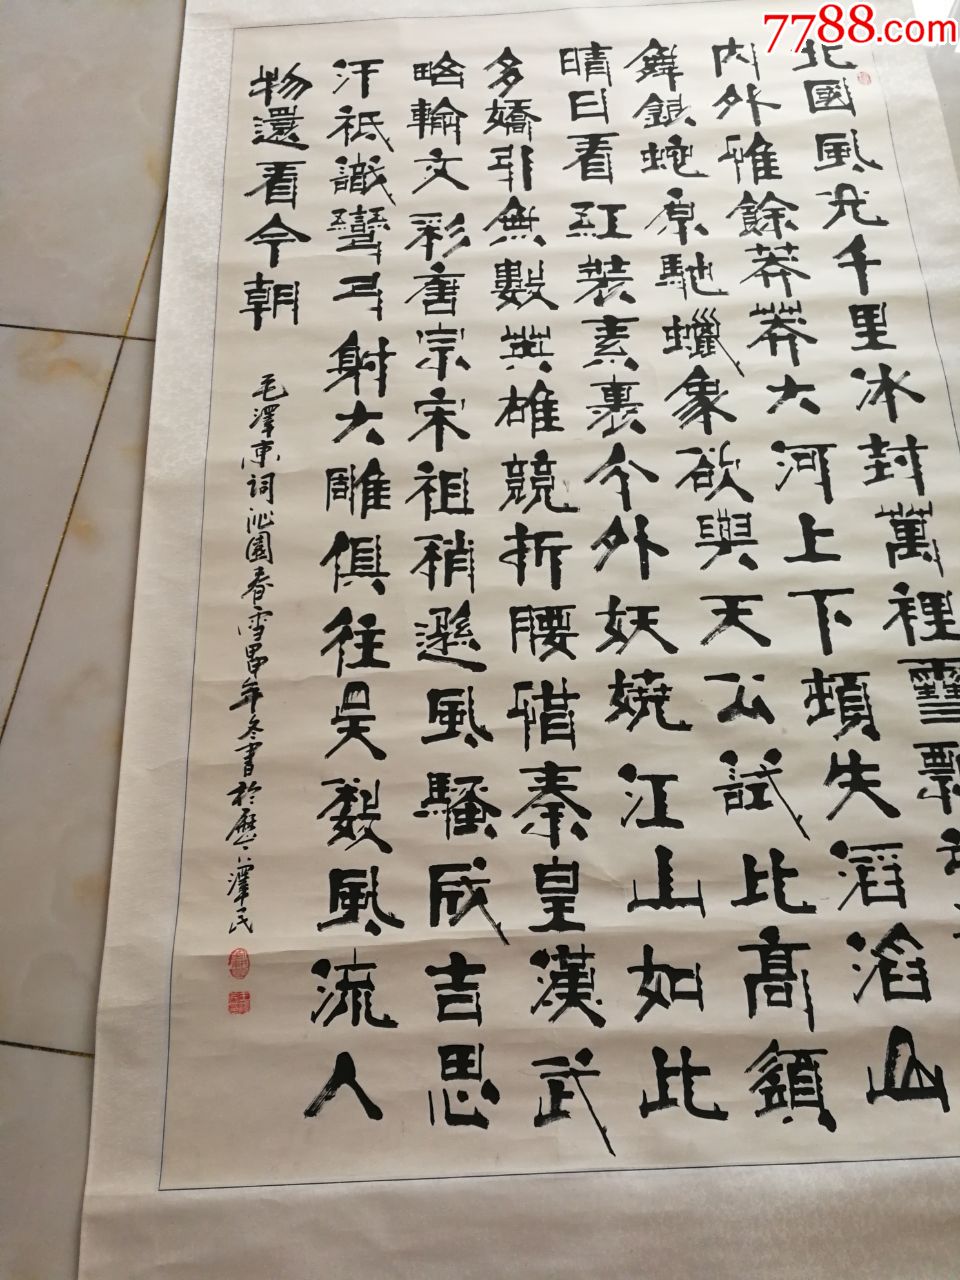 7788.com
北國風光千里冰封萬裡雪飄
内外惟餘莽莽大河上下頓失滔滔山
舞銀蛇原馳蠟象欲與天公試比高須
晴日看紅裝素裹分外妖嬈江山如此
多嬌引無數英雄競折腰惜秦皇漢武
略輸文彩唐宗宋祖稍遜風騷成吉思
汗祇識彎弓射大雕俱往矣數風流人
物還看今朝
毛澤東詞沁園春雪甲申年冬書於歷下澤民